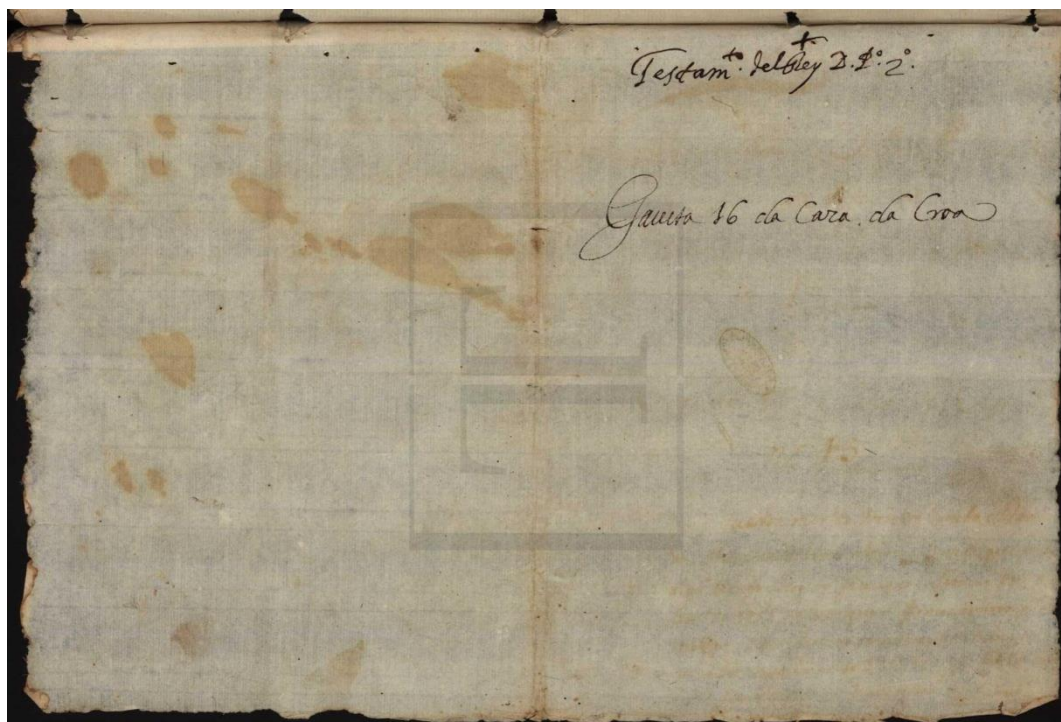 Testam.to del Rey D. P.o 2.o
Gaueta 16 da Caza da Croa